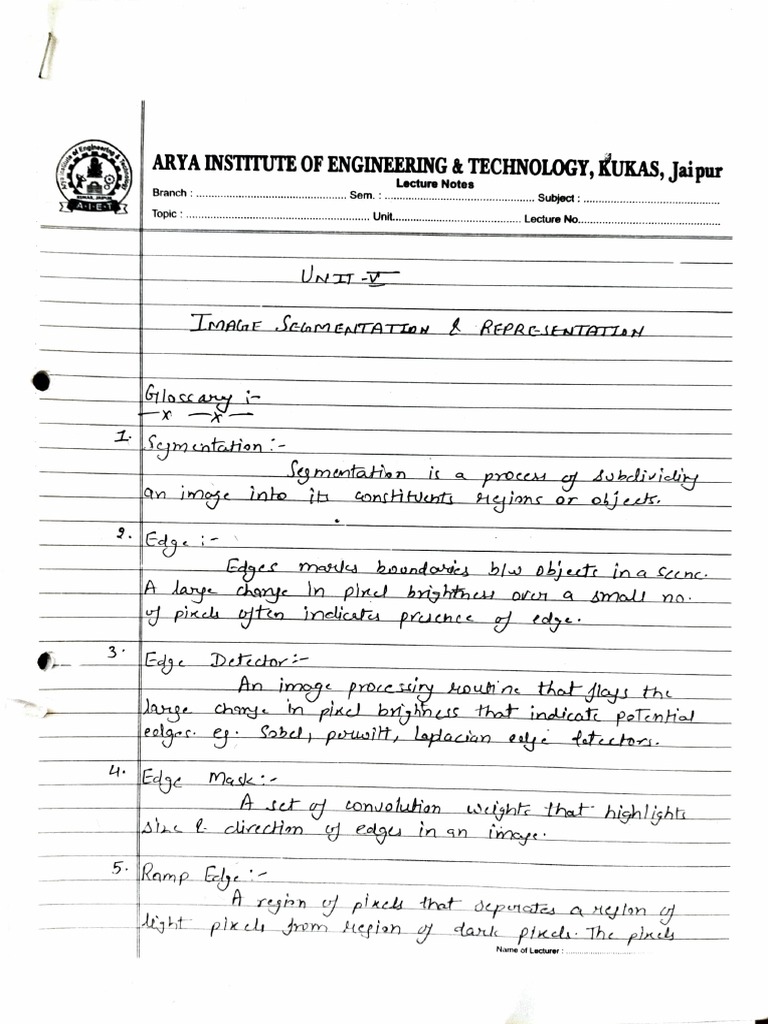 ARYA INSTITUTE OF ENGINEERING & TECHNOLOGY, KUKAS, Jaipur
Lecture Notes
Branch : ........................................ Sem. : ........................................ Subject : ....................................
Topic : ................................................ Unit................................... Lecture No....................................
Arya Institute of Engineering & Technology
KUKAS, JAIPUR
A-I-E-T
UNIT-V
IMAGE SEGMENTATION & REPRESENTATION
Glossary :-
1. Segmentation :-
Segmentation is a process of subdividing
an image into its constituents regions or objects.
2. Edge :-
Edges marks boundaries b/w objects in a scene.
A large change in pixel brightness over a small no.
of pixels often indicates presence of edge.
3. Edge Detector:-
An image processing routine that flags the
large change in pixel brightness that indicate potential
edges. eg. Sobel, perwitt, Laplacian edge detectors.
4. Edge Mask:-
A set of convolution weights that highlights
size & direction of edges in an image.
5. Ramp Edge:-
A region of pixels that seperates a region of
light pixels from region of dark pixels. The pixels
Name of Lecturer : ........................................